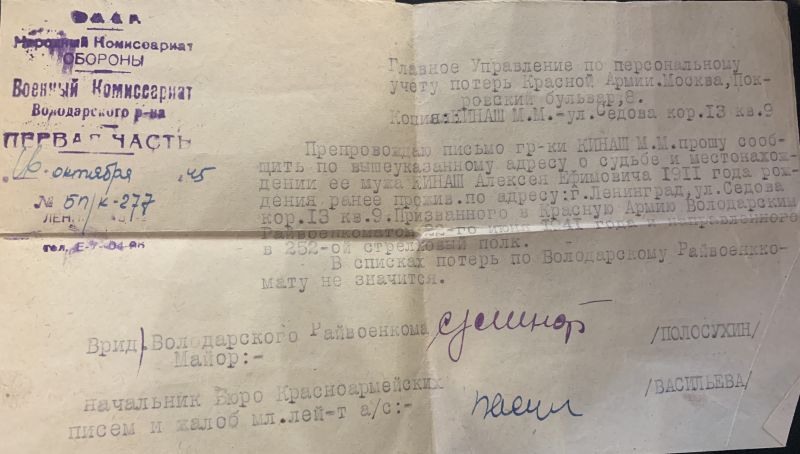 СССР
Народный Комиссариат
ОБОРОНЫ
Военный Комиссариат
Володарского р-на
ПЕРВАЯ ЧАСТЬ
"16" октября 45
№ БП/К-277
ЛЕНИНГРАД
тел.
Главное Управление по персональному
учету потерь Красной Армии.Москва,Пок-
ровский бульвар,8.
Копия:КИНАШ М.М.-ул.Седова кор.13 кв.9
Препровождаю письмо гр-ки КИНАШ М.М.прошу сооб-
щить по вышеуказанному адресу о судьбе и местонахож-
дении ее мужа КИНАШ Алексея Ефимовича 1911 года рож-
дения ранее прожив.по адресу:г.Ленинград,ул.Седова
кор.13 кв.9.Призванного в Красную Армию Володарским
Райвоенкоматом го июня 1941 года и направленного
в 252-ой стрелковый полк.
В списках потерь по Володарскому Райвоенко-
мату не значится.
Врид.Володарского Райвоенкома /ПОЛОСУХИН/
Майор:-
начальник Бюро Красноармейских /ВАСИЛЬЕВА/
писем и жалоб мл.лей-т а/с:-